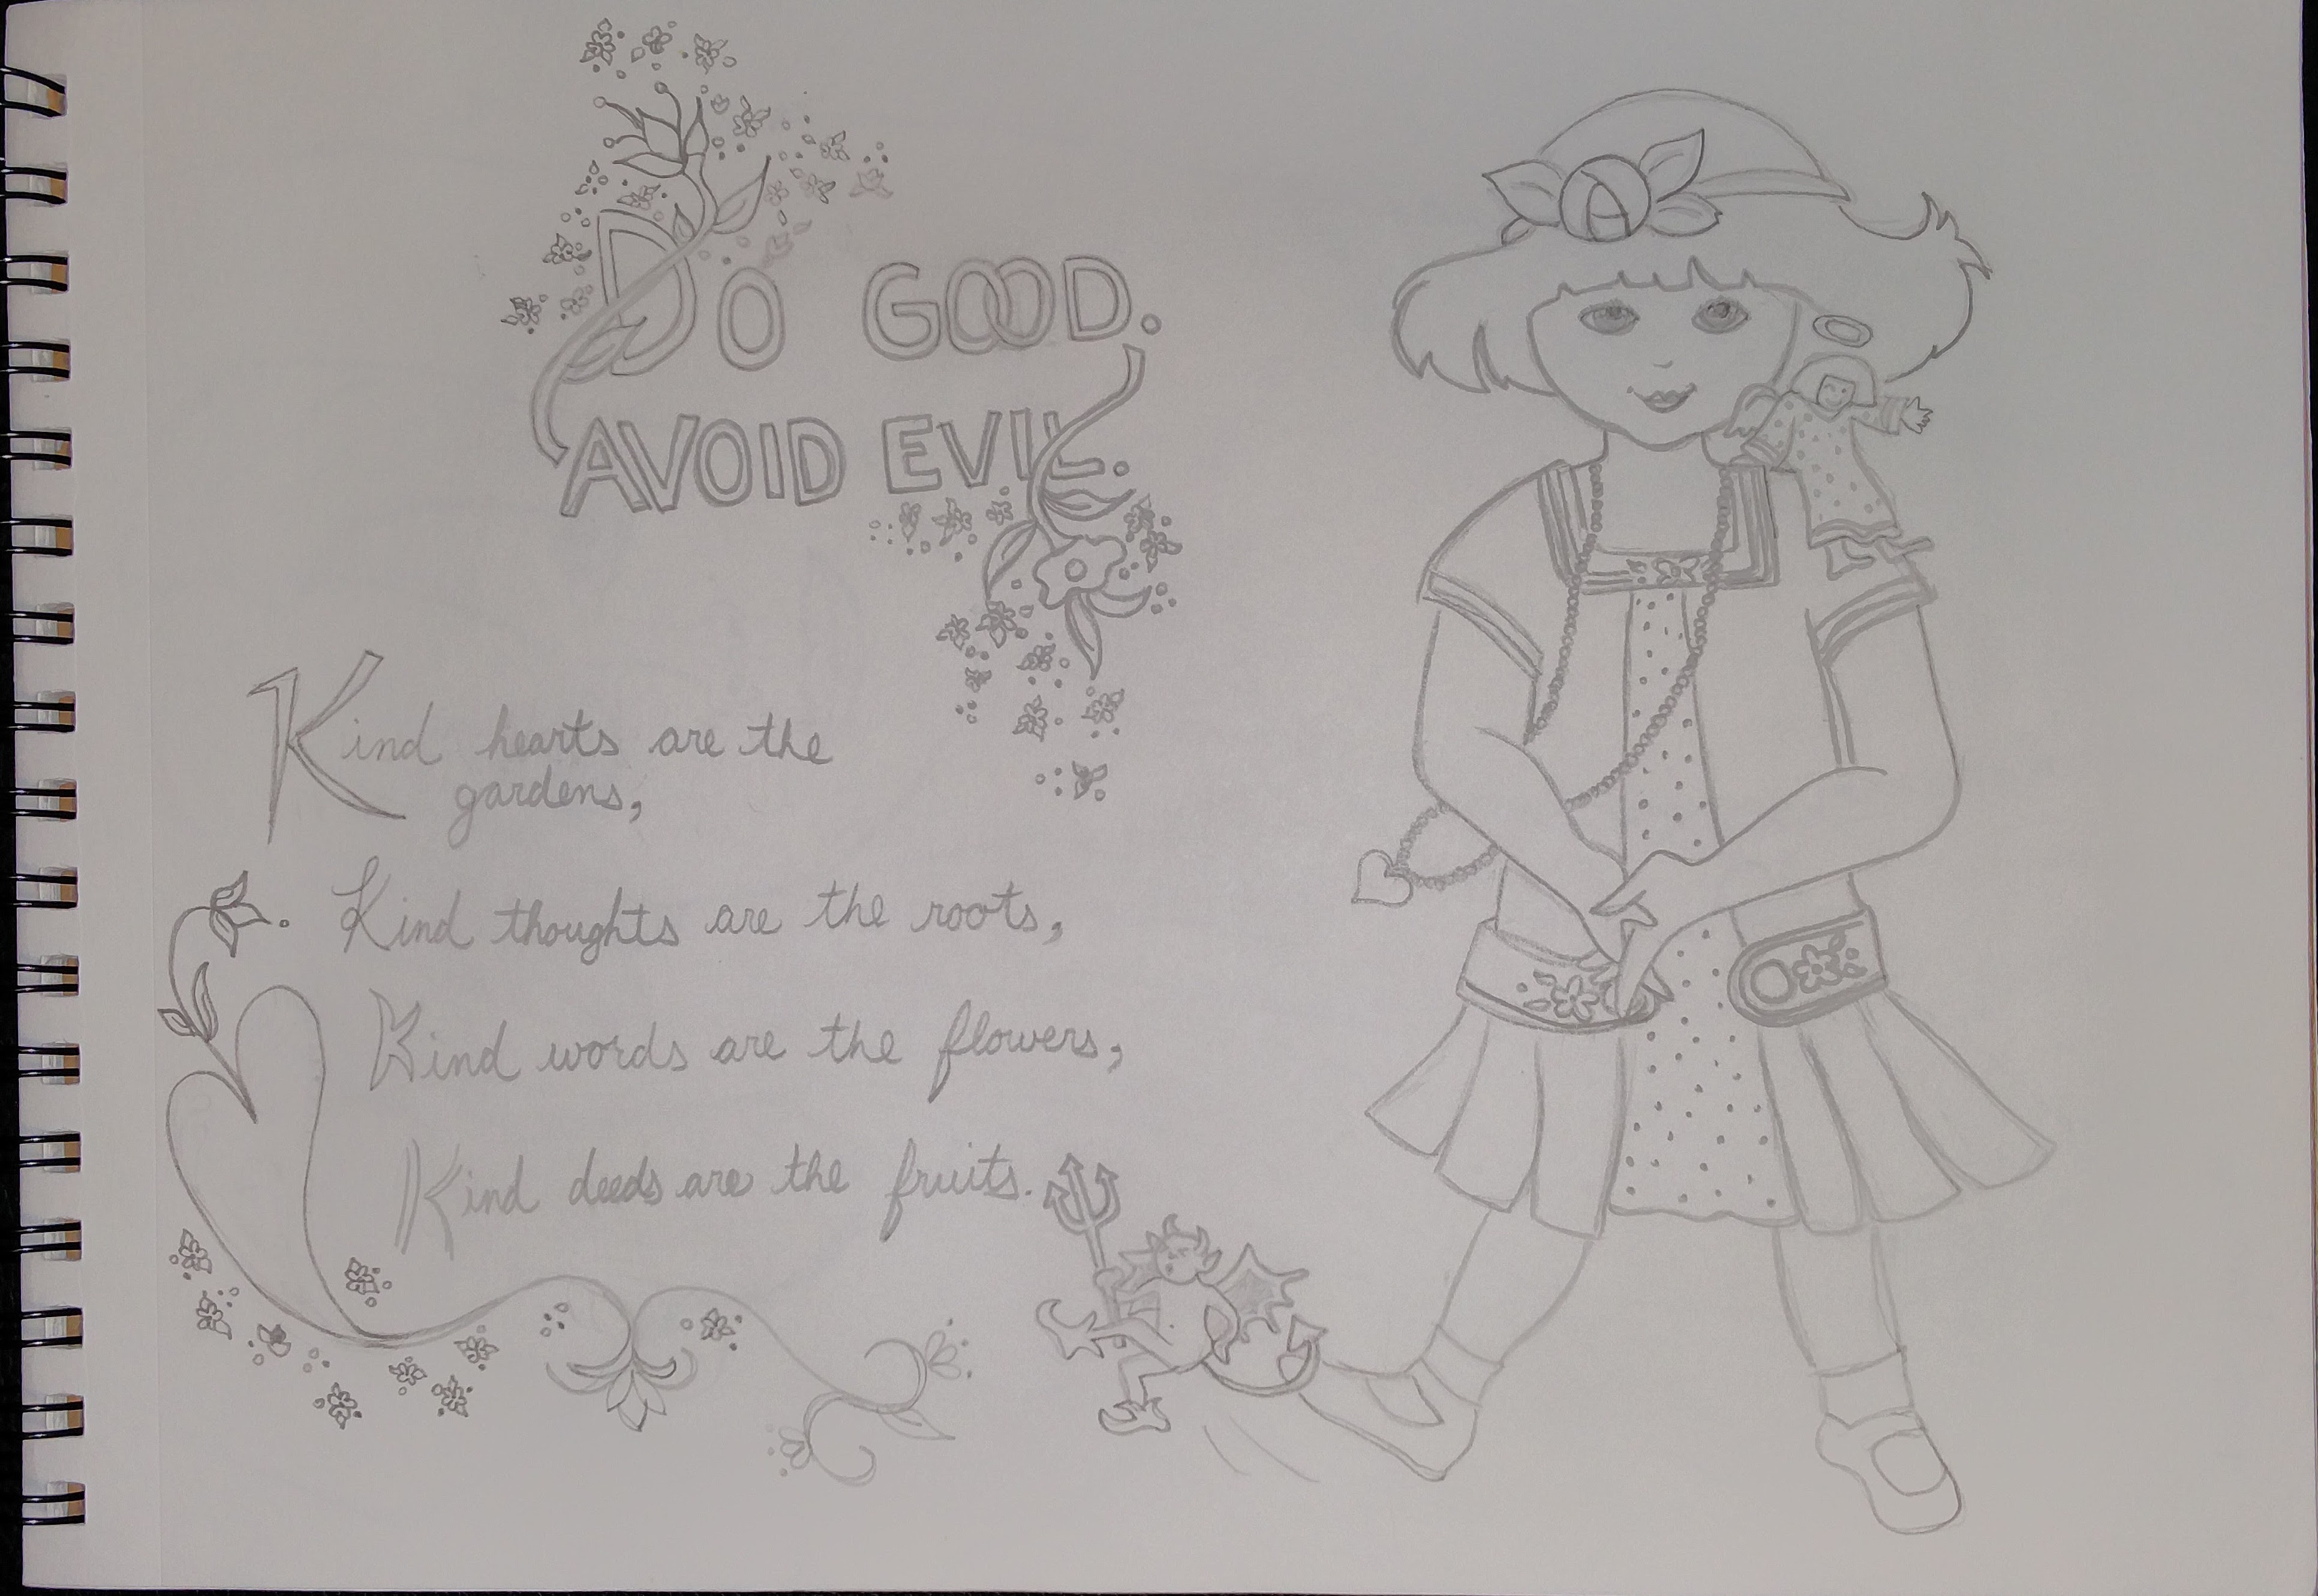 DO GOOD.
AVOID EVIL.
Kind hearts are the
gardens,
Kind thoughts are the roots,
Kind words are the flowers,
Kind deeds are the fruits.